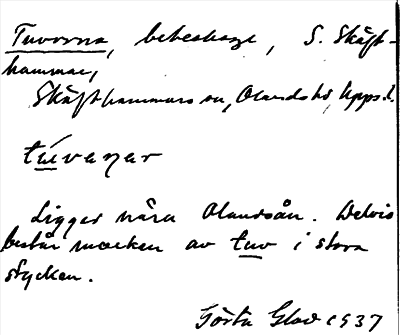 Tuvorna, beteshage, S. Skäft-
hammar,
Skäfthammars sn, Olands hd, Upps.l.
túvaṇar
Ligger nära Olandsån. Delvis
består marken av tuv i stora
stycken.
Gösta Glad 1937